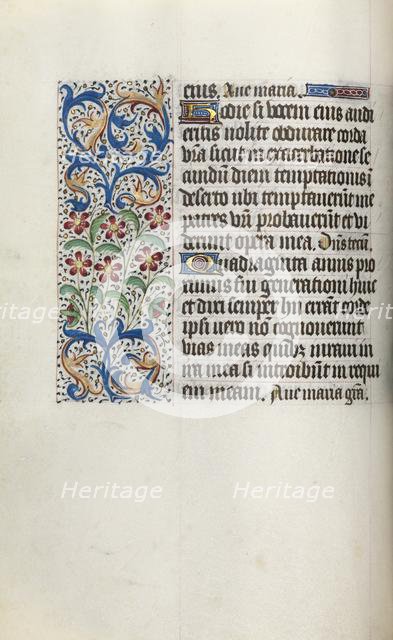 eius. Aue maria.
Hodie si vocem eius audi
eritis nolite obdurare corda
v̄ra sicut in exacerbatione se
cundū diem temptationis ī
deserto ubi temptauerūt me
patres vr̄i probauerūt et vi
derunt opera mea. Dn̄s tecū.
Quadraginta annis pro
ximus fui generationi huic
et dixi semper hii errāt corde
ipsi uero nō cognouerunt
vias meas quibꝫ iuraui in
ira mea si introibūt in requi
em meam. Aue maria gr̄a.
Heritage Heritage
Heritage Heritage
Heritage Heritage